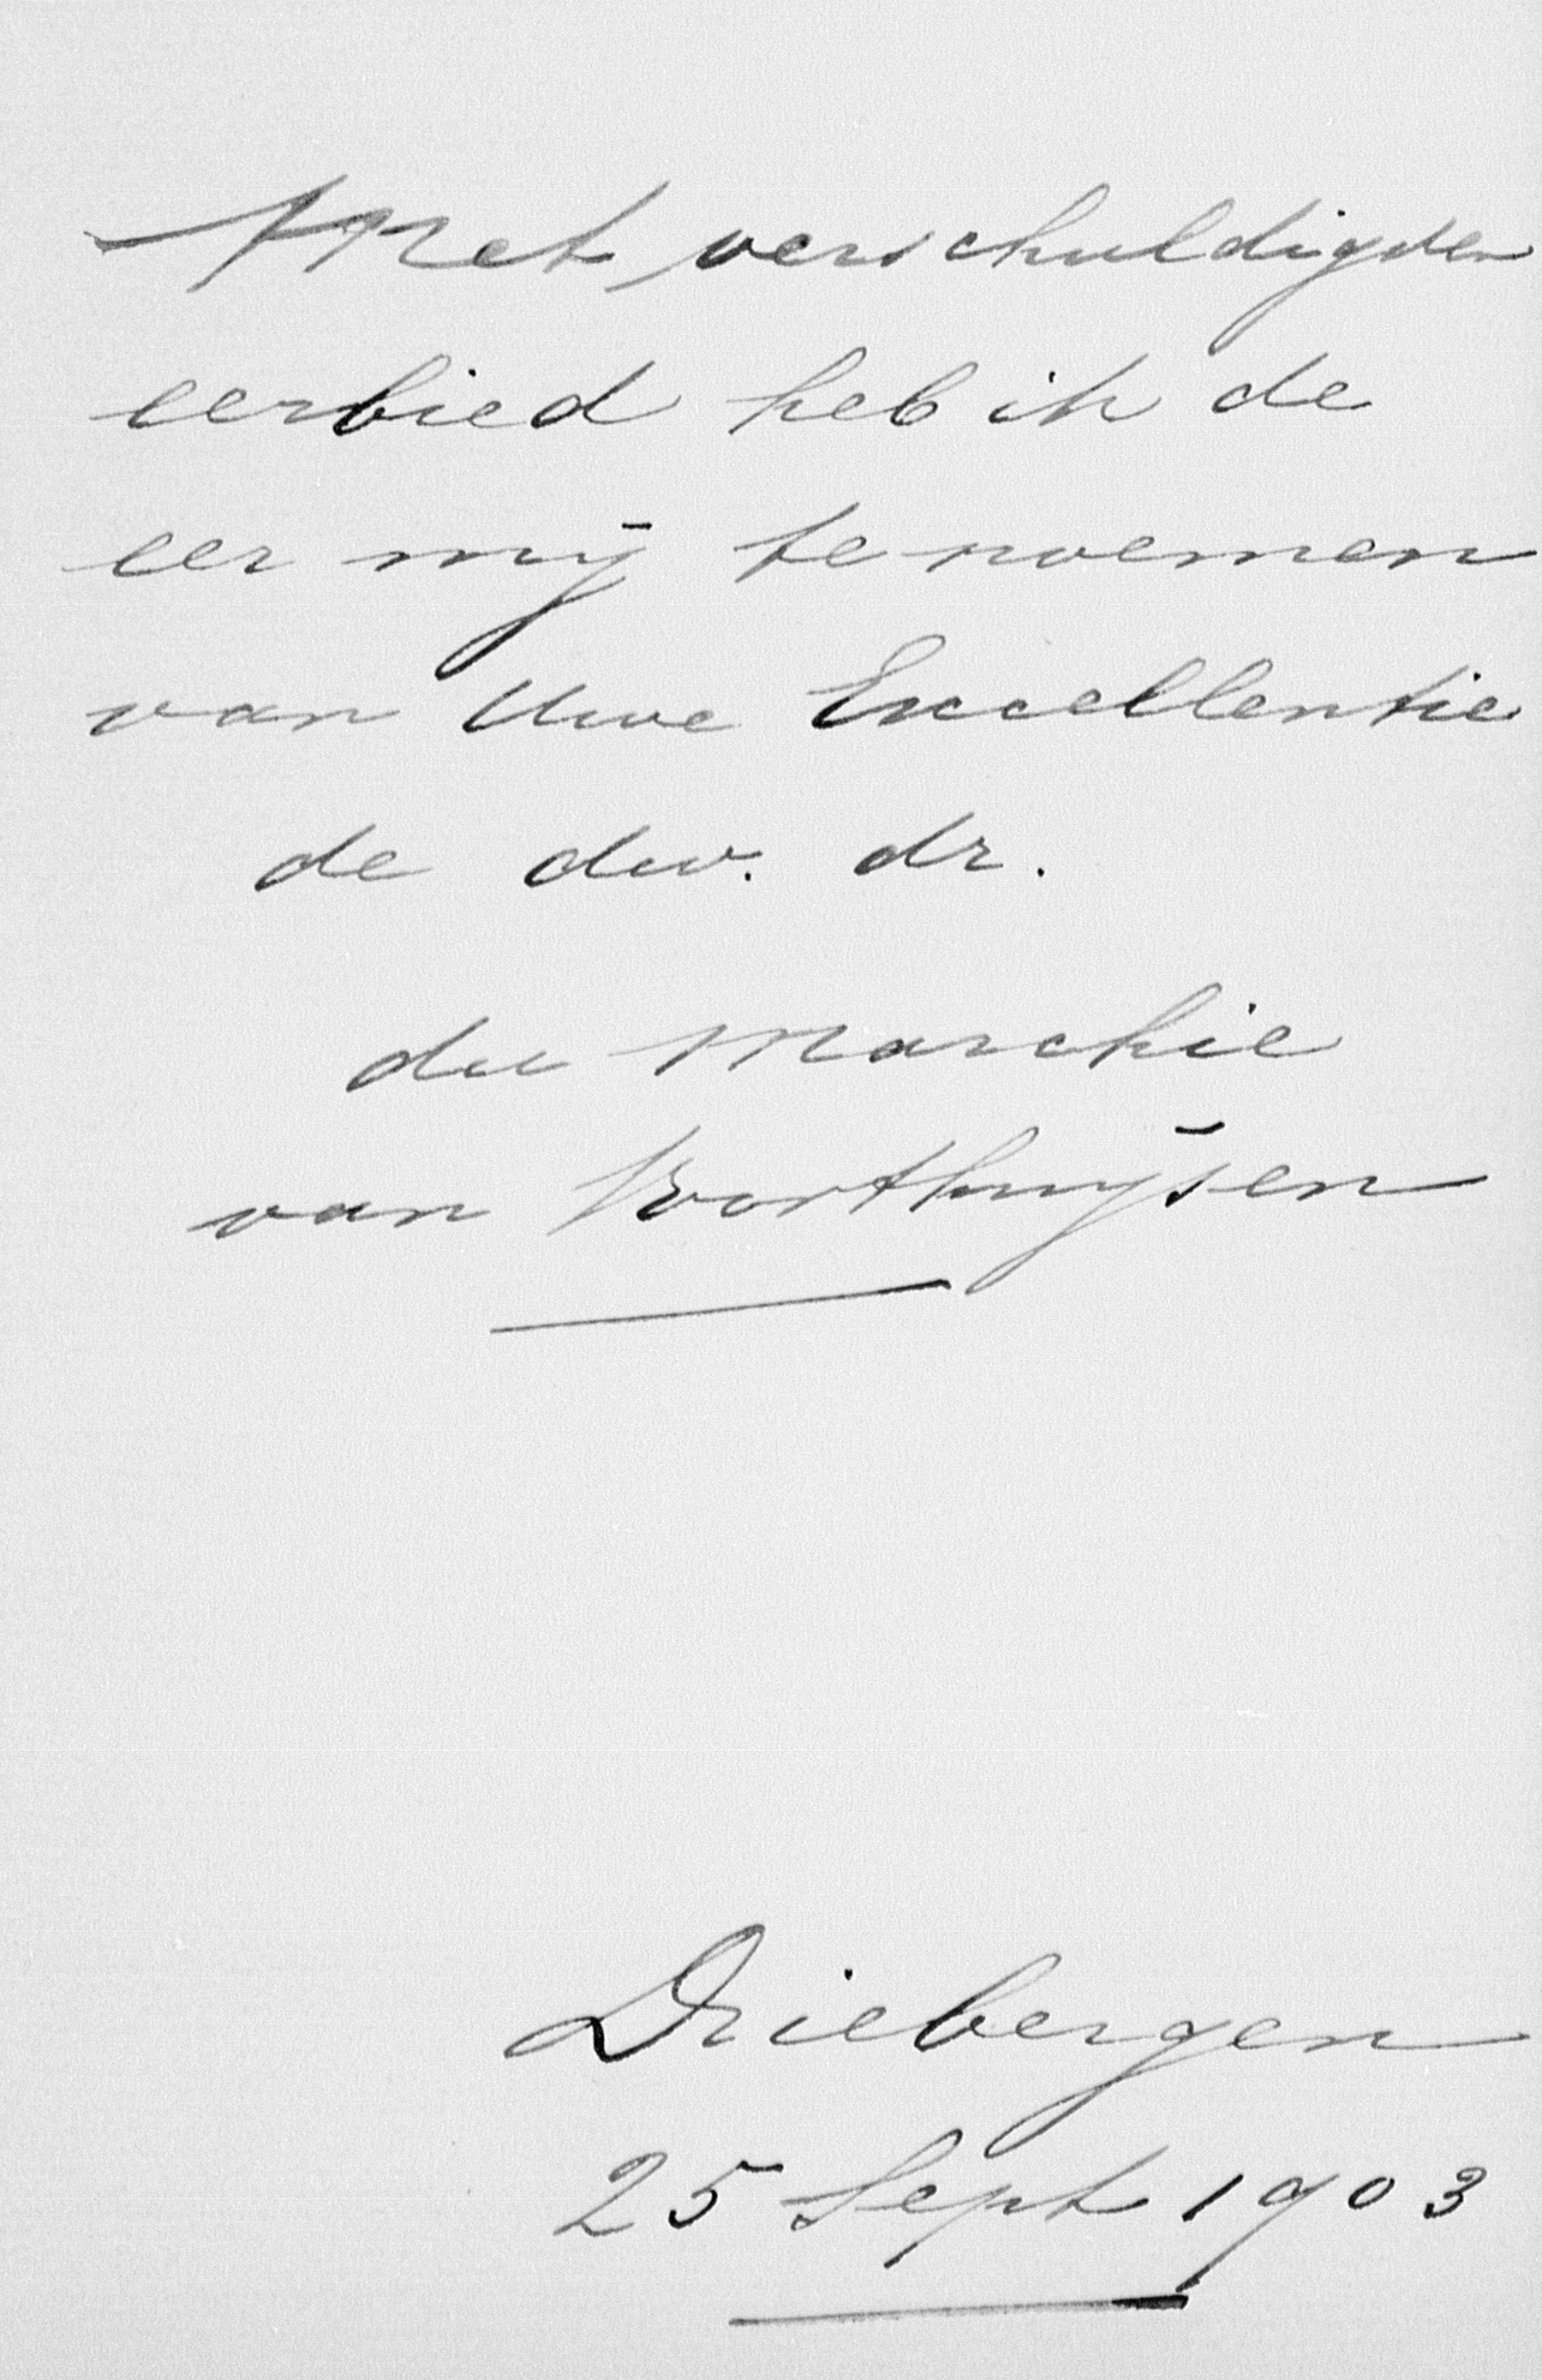 Met verschuldigden
eerbied heb ik de
eer mij te noemen
van Uwe Excellentie
de dw. dr.
du Marchie
van Voorthuijsen
Driebergen
25 Sept 1903